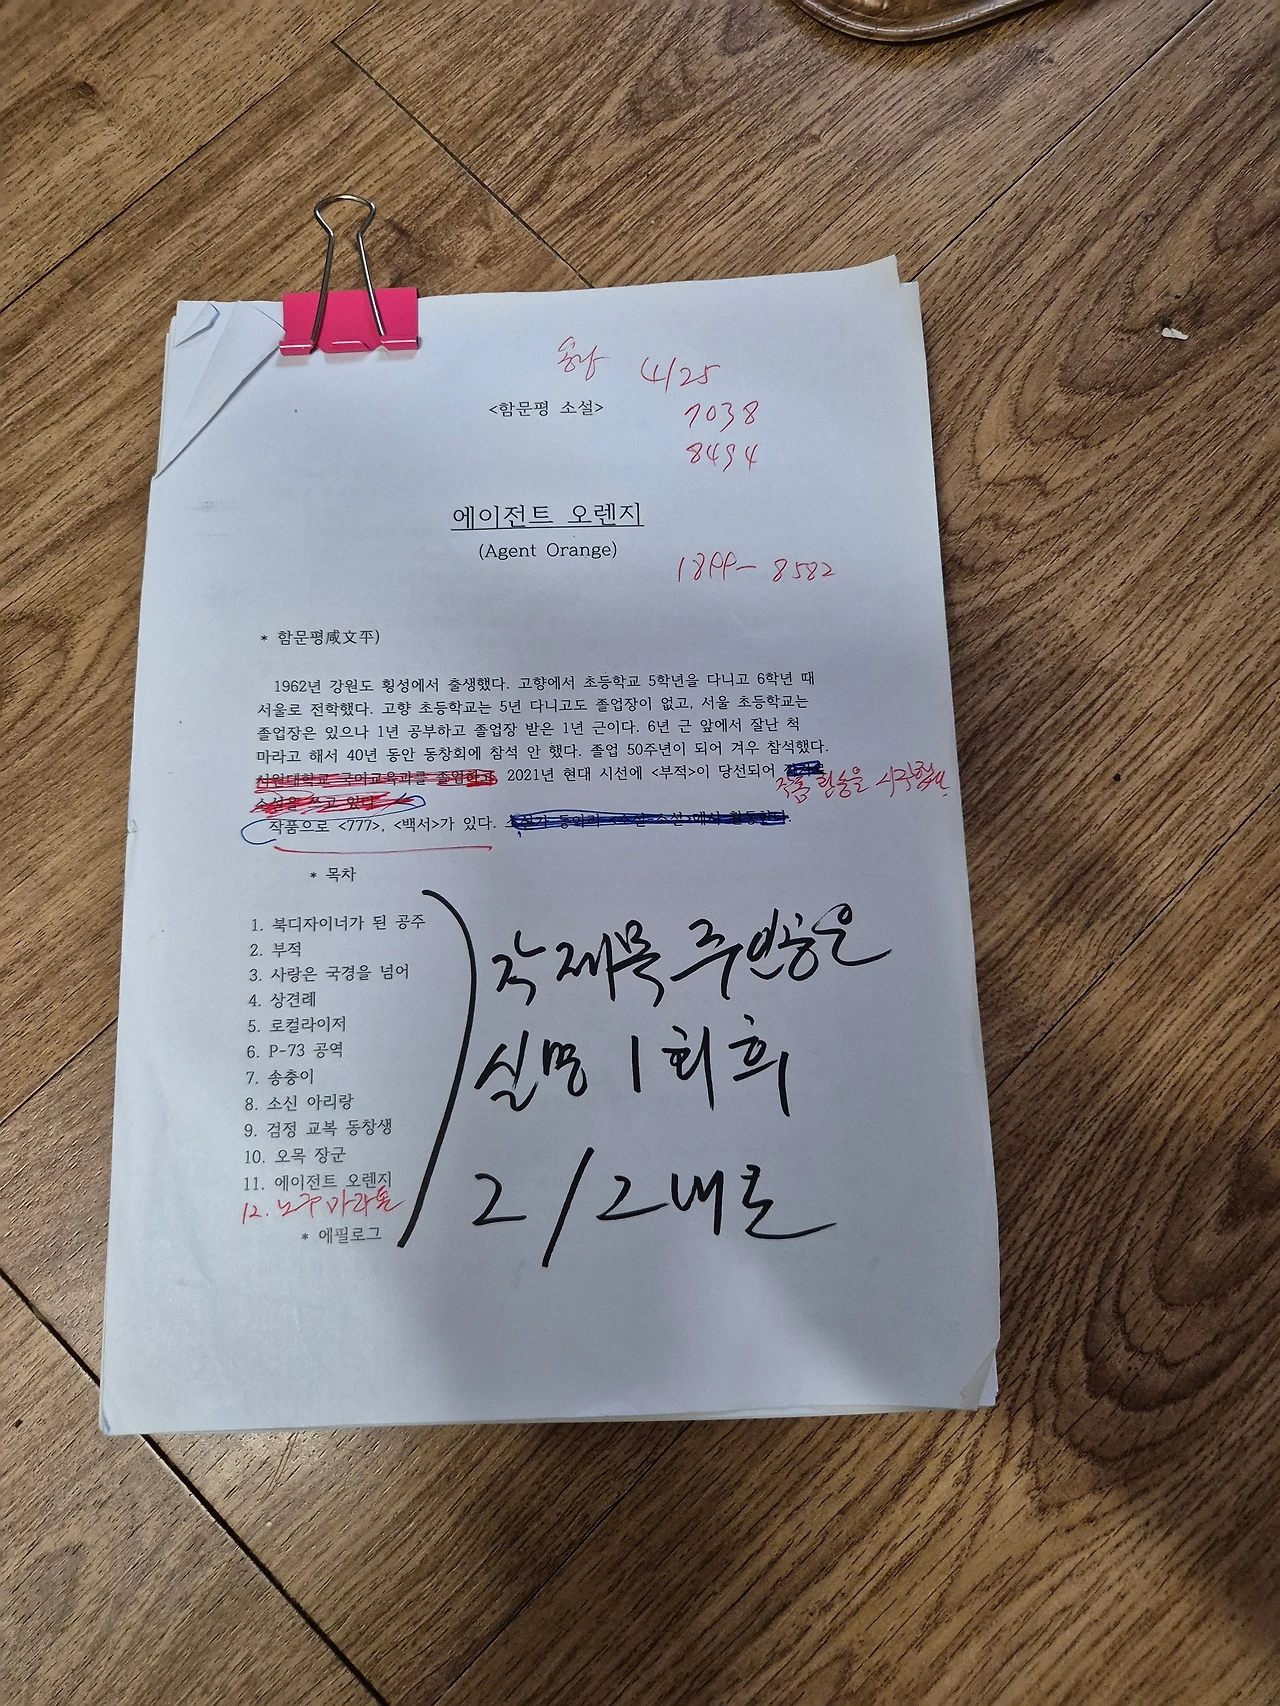 4/25
<함문평 소설>
7038
8494
에이전트 오렌지
(Agent Orange)
1899-8582
* 함문평咸文平)
1962년 강원도 횡성에서 출생했다. 고향에서 초등학교 5학년을 다니고 6학년 때
서울로 전학했다. 고향 초등학교는 5년 다니고도 졸업장이 없고, 서울 초등학교는
졸업장은 있으나 1년 공부하고 졸업장 받은 1년 근이다. 6년 근 앞에서 잘난 척
마라고 해서 40년 동안 동창회에 참석 안 했다. 졸업 50주년이 되어 겨우 참석했다.
국어교육과를 졸업하고 2021년 현대 시선에 <부적>이 당선되어
작품 활동을 시작했다.
소설을 쓰고 있다.
작품으로 <777>, <백서>가 있다.
* 목차
1. 북디자이너가 된 공주
2. 부적
3. 사랑은 국경을 넘어
4. 상견례
5. 로컬라이저
6. P-73 공역
7. 송충이
8. 소신 아리랑
9. 검정 교복 동창생
10. 오목 장군
11. 에이전트 오렌지
12. 노주 마라톤
* 에필로그
각 제목 주인공은
실명 1회 후
2/2